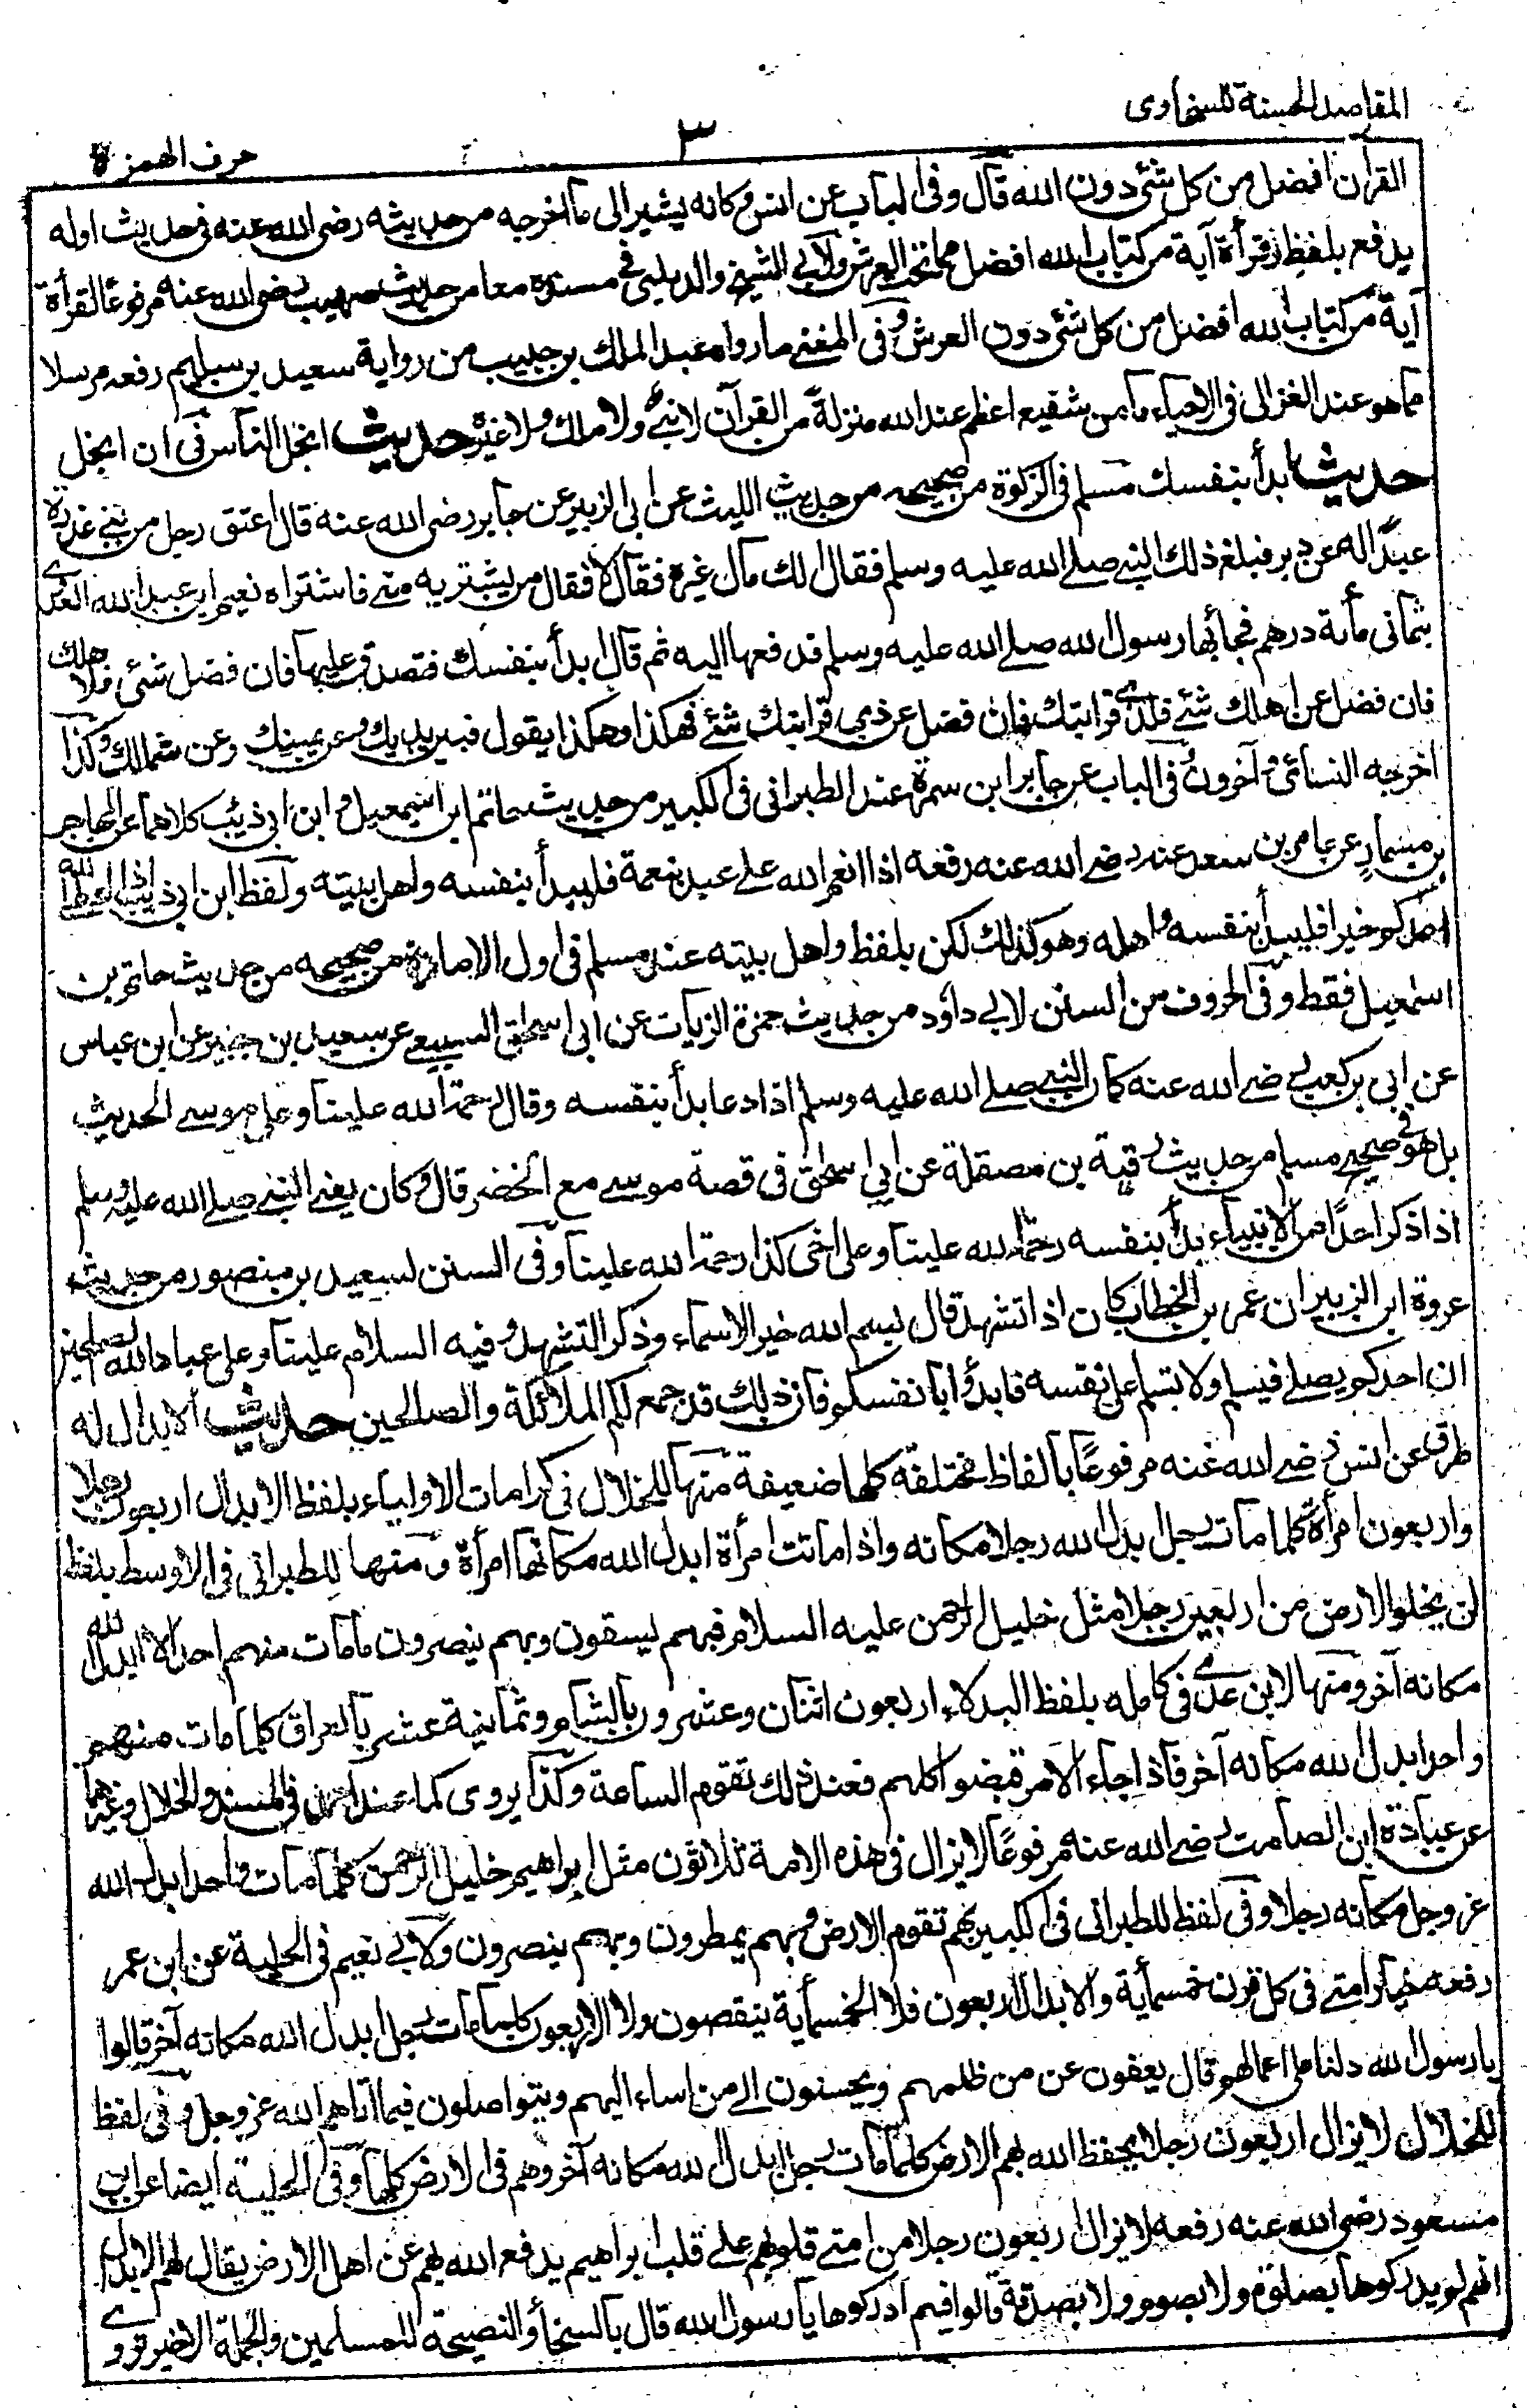 المقاصد الحسنة للسخاوى
٣
حرف الهمزة
القرآن افضل من كل شئ دون الله قال وفى الباب عن انس وكانه يشير الى ما اخرجه من حديثه رضى الله عنه فى حديث اوله
يدفع بلفظ قرأة آية من كتاب الله افضل مما تحت العرش ولابى الشيخ والديلمى فى مسنده معا من حديث صهيب رضى الله عنه مرفوعا لقرأة
آية من كتاب الله افضل من كل شئ دون العرش وفى المغنى ما رواه عبد الملك بن حبيب من رواية سعيد بن سليم رفعه مرسلا
مما هو عند الغزالى فى الاحياء ما من شفيع اعظم عند الله منزلة من القرآن لا نبى ولا ملك ولا غيره حديث ابخل الناس فى ان ابخل
حديث ابدأ بنفسك مسلم فى الزكوة من صحيحه من حديث الليث عن ابى الزبير عن جابر رضى الله عنه قال اعتق رجل من بنى عذرة
عبدا له عن دبر فبلغ ذلك النبى صلے الله عليه وسلم فقال الك مال غيره فقال لا فقال من يشتريه منى فاشتراه نعيم ابن عبد الله العدوى
بثمانى مأية درهم فجا بها رسول الله صلے الله عليه وسلم فدفعها اليه ثم قال ابدأ بنفسك فتصدق عليها فان فضل شئ فلاهلك
فان فضل عن اهلك شئ فلذى قرابتك فان فضل عن ذى قرابتك شئ فهكذا وهكذا يقول فبين يديك وعن يمينك وعن شمالك وكذا
اخرجه النسائى وآخرون وفى الباب عن جابر ابن سمرة عند الطبرانى فى الكبير من حديث حاتم ابن اسمعيل وابن ابى ذئب كلاهما عن المهاجر
بن مسمار عن عامر بن سعد عنه رضے الله عنه رفعه اذا انعم الله على عبد نعمة فليبدأ بنفسه واهل بيته ولفظ ابن ابى ذئب اذا اعطى الله
احدكم خيرا فليبدأ بنفسه واهله وهو كذلك لكن بلفظ واهل بيته عند مسلم فى اول الامارة من صحيحه من حديث حاتم بن
اسمعيل فقط وفى الحروف من السنن لابى داود من حديث حمزة الزيات عن ابى اسحاق السبيعى عن سعيد بن جبير عن ابن عباس
عن ابى بن كعب رضے الله عنه كان النبى صلے الله عليه وسلم اذا دعا بدأ بنفسه وقال رحمة الله علينا وعلى موسى الحديث
بل هو فى صحيح مسلم من حديث رقبة بن مصقلة عن ابى اسحق فى قصة موسى مع الخضر قال وكان يعنى النبى صلے الله عليه وسلم
اذا ذكر احدا من الانبياء بدأ بنفسه رحمة الله علينا وعلى اخى كذا رحمة الله علينا وفى السنن لسعيد بن منصور من حديث
عروة ابن الزبير ان عمر بن الخطاب كان اذا تشهد قال بسم الله خير الاسماء وذكر التشهد وفيه السلام علينا وعلى عباد الله الصالحين
ان احدكم يصلى فيسلم ولا يسلم على نفسه فابدؤا بانفسكم فان ذلك قد جمع لكم الملائكة والصالحين حديث الابدال له
طرق عن انس رضے الله عنه مرفوعا بالفاظ مختلفة كلها ضعيفة منها للخلال فى كرامات الاولياء بلفظ الابدال اربعون رجلا
واربعون امرأة كلما مات رجل ابدل الله رجلا مكانه واذا ماتت امرأة ابدل الله مكانها امرأة ومنها للطبرانى فى الاوسط بلفظ
لن تخلو الارض من اربعين رجلا مثل خليل الرحمن عليه السلام فبهم يسقون وبهم ينصرون ما مات منهم احد الا ابدل الله
مكانه آخر ومنها لابن عدى فى كامله بلفظ البدلاء اربعون اثنان وعشرون بالشام وثمانية عشر بالعراق كلما مات منهم
واحد ابدل الله مكانه آخر فاذا جاء الامر قبضوا كلهم فعند ذلك تقوم الساعة وكذا يروى كما عند احمد فى المسند والخلال وغيرهما
عن عبادة ابن الصامت رضے الله عنه مرفوعا لا يزال فى هذه الامة ثلاثون مثل ابراهيم خليل الرحمن كلما مات واحد ابدل الله
عز وجل مكانه رجلا وفى لفظ للطبرانى فى الكبير بهم تقوم الارض وبهم يمطرون وبهم ينصرون ولابى نعيم فى الحلية عن ابن عمر
رفعه خيار امتى فى كل قرن خمسمأية والابدال اربعون فلا الخمسمأية ينقصون ولا الاربعون كلما مات رجل ابدل الله مكانه آخر قالوا
يا رسول الله دلنا على اعمالهم قال يعفون عن من ظلمهم ويحسنون الى من اساء اليهم ويتواصلون فيما اتاهم الله عز وجل وفى لفظ
للخلال لا يزال اربعون رجلا يحفظ الله بهم الارض كلما مات رجل ابدل الله مكانه آخر وهم فى الارض كلها وفى الحلية ايضا عن ابن
مسعود رضى الله عنه رفعه لا يزال اربعون رجلا من امتى قلوبهم على قلب ابراهيم يدفع الله بهم عن اهل الارض يقال لهم الابدال
انهم لم يدركوها بصلوة ولا بصوم ولا بصدقة قالوا فبم ادركوها يا رسول الله قال بالسخأ والنصيحة للمسلمين والجملة الاخيرة تروى